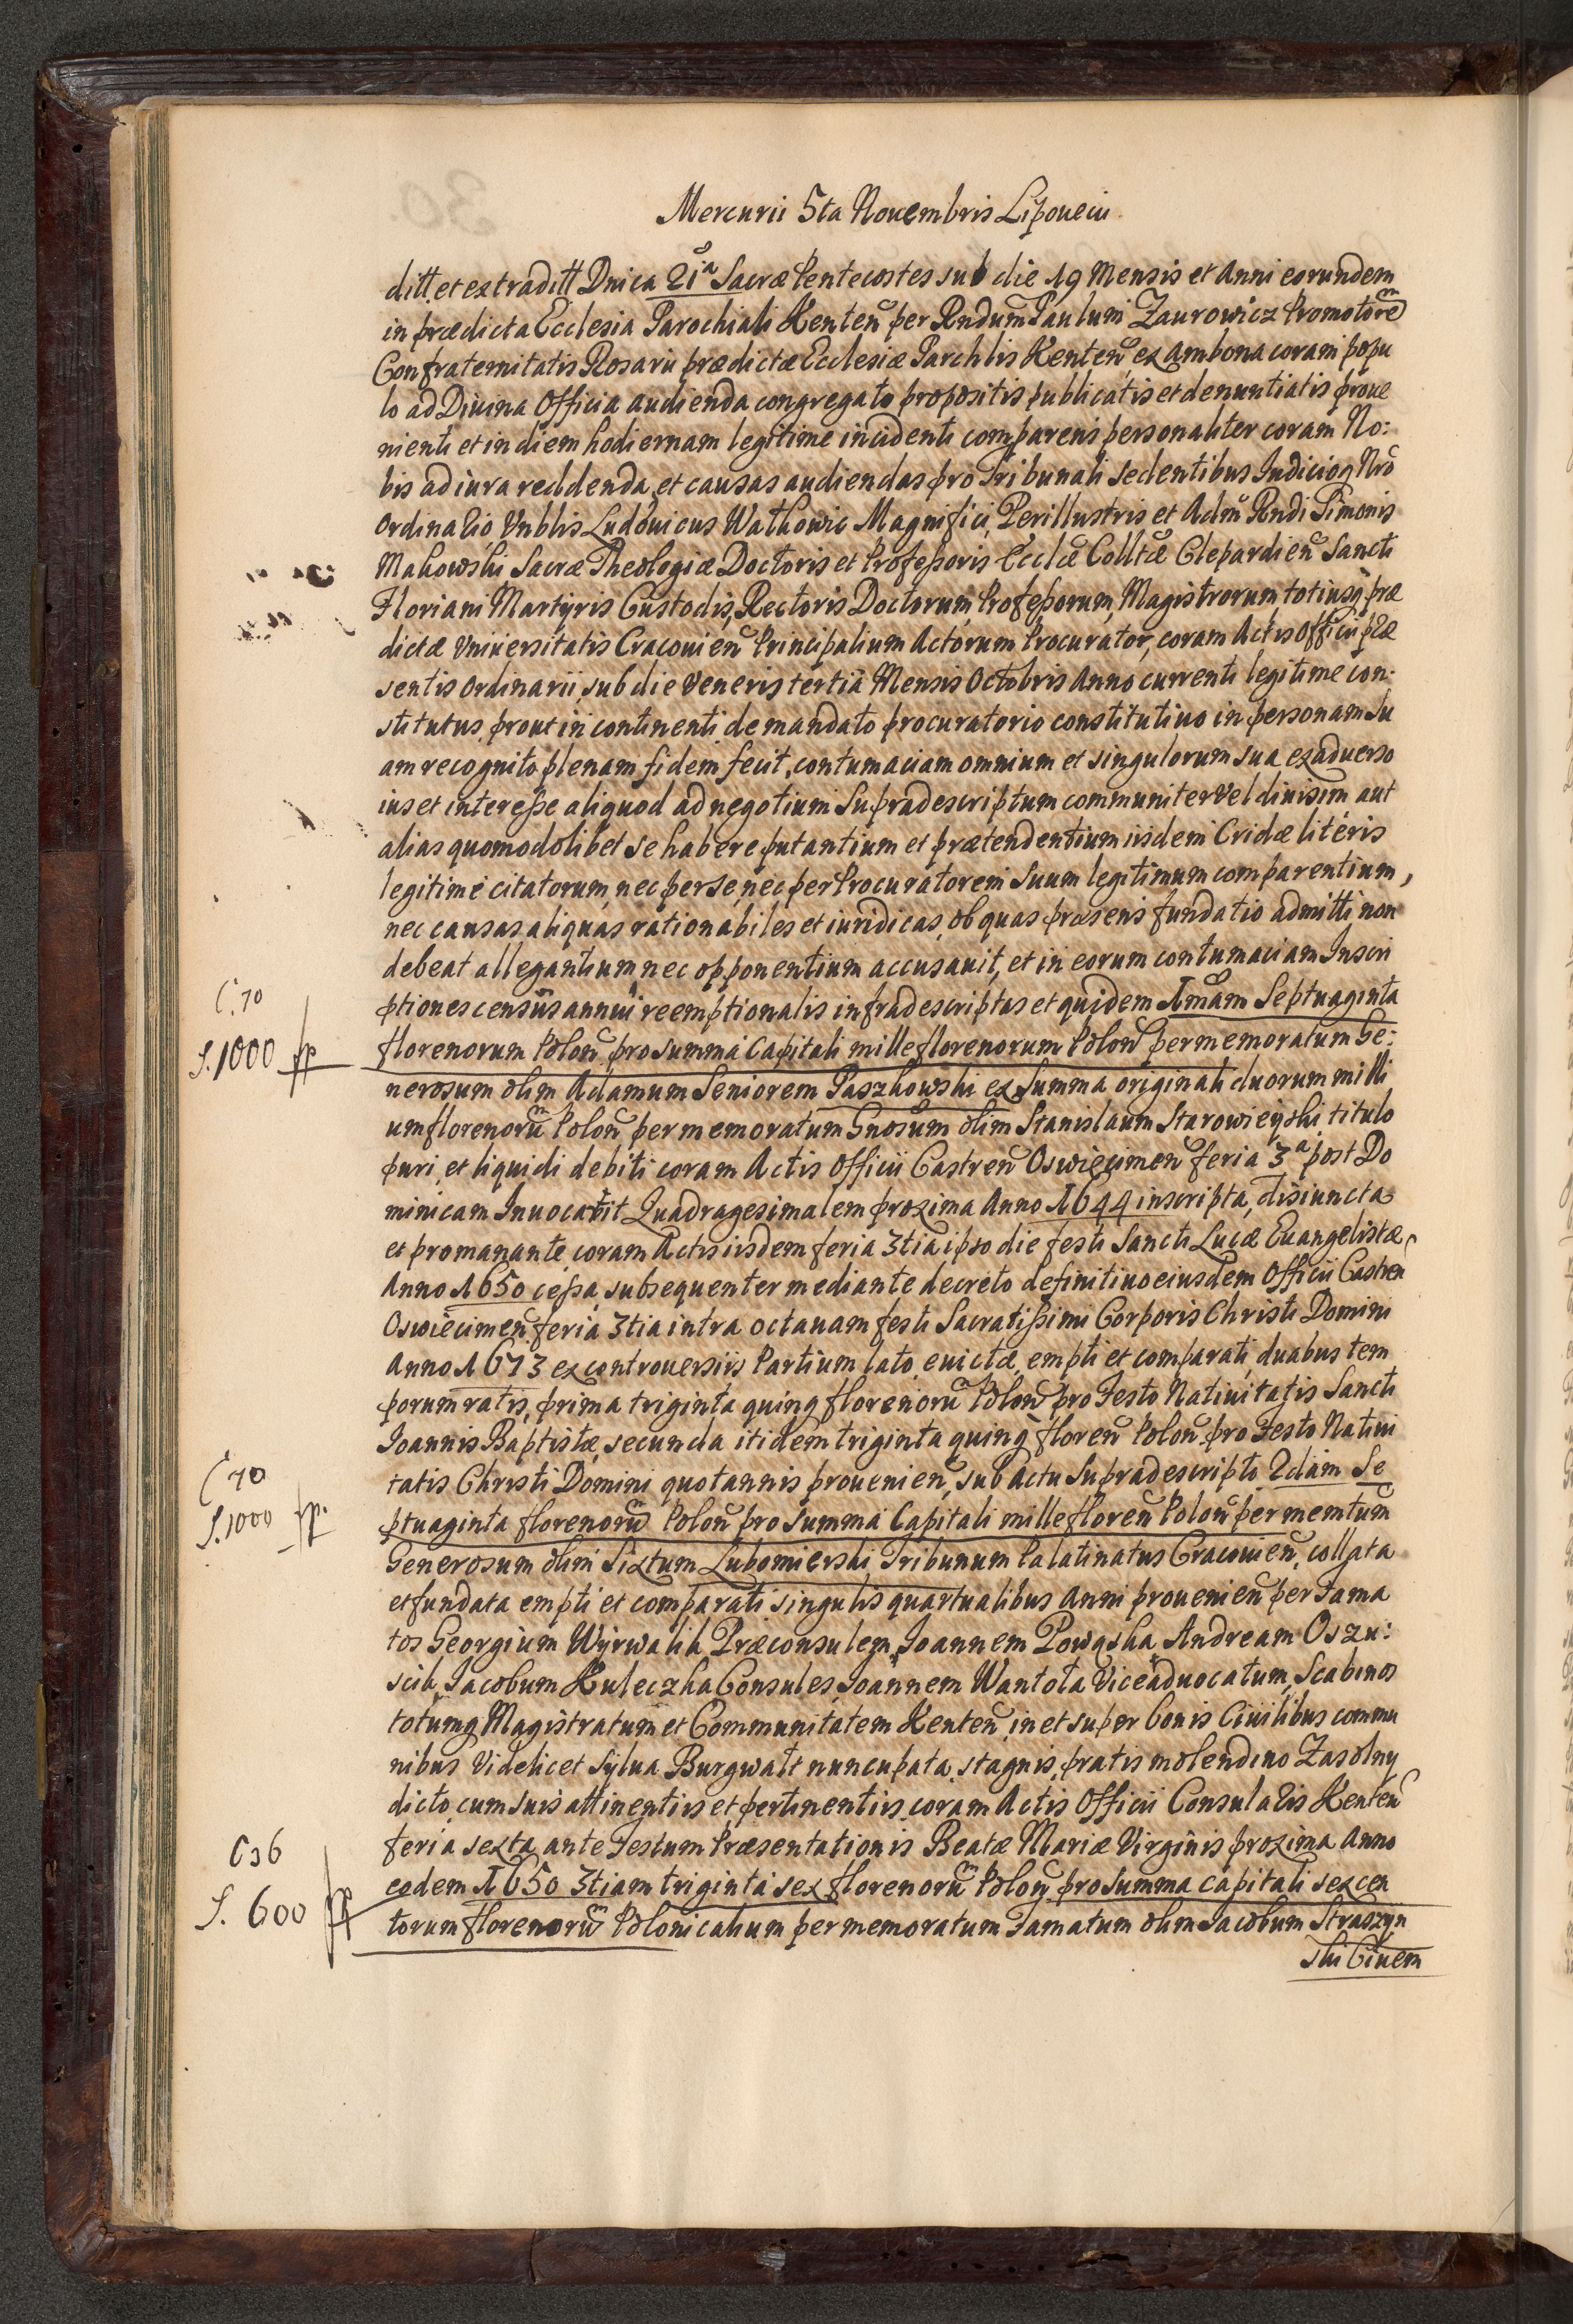 Mercurii 5ta Nouembris Lipouecii
ditt. et extraditt Dnica 21a Sacræ Pentecostes sub die 19 Mensis et Anni eorundem
in prædicta Ecclesia Parochiali Kenteñ per Rndum Paulum Zaurowicz Promotorẽ
Confraternitatis Rosarii prædictæ Ecclesiæ Parchlis Kenteñ ex Ambona coram popu
lo ad Diuina Officia audienda congregato propositis publicatis et denuntiatis proue
nienti et in diem hodiernam legitime incidenti comparens personaliter coram No:
bis ad iura reddenda et causas audiendas pro Tribunali sedentibus Iudicioq Nrõ
Ordinario Vnblis Ludouicus Wathowic Magnifici Perillustris et Admr̃ Rndi Simonis
Makowski Sacræ Theologiæ Doctoris et Profeßoris Ecclæ Colltæ Clepardieñ Sancti
Floriani Martyris Custodis, Rectoris Doctorum, Profeßorum, Magistrorum totiusq præ
dictæ Vniuersitatis Cracouieñ Principalium Actorum Procurator, coram Actis Officii præ
sentis Ordinarii sub die Veneris tertia Mensis Octobris Anno currenti legitime con:
stitutus, prout in continenti de mandato procuratorio constitutiuo in personam su
am recognito plenam fidem fecit, contumaciam omnium et singulorum sua ex aduerso
ius et intereße aliquod ad negotium supradescriptum communiter vel diuisim aut
alias quomodolibet se habere putantium et prætendentium iisdem Cridæ literis
legitime citatorum, nec per se, nec per Procuratorem suum legitimum comparentium,
nec causas aliquas rationabiles et iuridicas, ob quas præsens fundatio admitti non
debeat allegantium, nec opponentium accusauit, et in eorum contumaciam Inscri
ptiones census annui reemptionalis infradescriptas et quidem 1mam Septuaginta
C. 70
S. 1000 fp
florenorum Poloñ pro summa Capitali mille florenorum Poloñ per memoratum Ge:
nerosum olim Adamum Seniorem Paszkowski ex Summa originali duorum milli
um florenorũ Poloñ per memoratum Gnosum olim Stanislaum Starowieyski titulo
puri et liquidi debiti coram Actis Officii Castreñ Oswiecimeñ feria 3a post Do
minicam Inuocavit Quadragesimalem proxima Anno 1644 inscripta, disiuncta
et promanante coram Actis iisdem feria 3tia ipso die festi Sancti Lucæ Euangelistæ
Anno 1650 ceßa, subsequenter mediante decreto definitiuo eiusdem Officii Castreñ
Oswiecimeñ feria 3tia intra octauam festi Sacratißimi Corporis Christi Domini
Anno 1673 ex controuersiis Partium lato, euictæ, empti et comparati, duabus tem
porum ratis, prima triginta quinq florenorũ Poloñ pro Festo Natiuitatis Sancti
Ioannis Baptistæ, secunda itidem triginta quinq floreñ Poloñ pro Festo Natiui
tatis Christi Domini quotannis prouenieñ, sub Actu supradescripto 2dam Se
C 70
S. 1000 fp.
ptuaginta florenorũ Poloñ pro Summa Capitali mille floreñ Poloñ per memtum
Generosum olim Sixtum Lubomierski Tribunum Palatinatus Cracouieñ, collata
et fundata empti et comparati singulis quartualibus Anni prouenieñ per Fama
tos Georgium Wyrwalik Præconsulem, Ioannem Powąska Andream Oszu:
scik, Iacobum Kuleczka Consules, Ioannem Wantota Viceaduocatum, Scabinos
totumq Magistratum et Communitatem Kenteñ, in et super bonis Ciuilibus commu
nibus Videlicet Sylua Burgwalt nuncupata, stagnis, pratis molendino Zasolny
dicto, cum suis attinentiis et pertinentiis coram Actis Officii Consularis Kenteñ
feria sexta ante Festum Præsentationis Beatæ Mariæ Virginis proxima Anno
C 36
S. 600 fp
eodem 1650 3tiam triginta sex florenorũ Poloñ pro summa capitali sexcen
torum florenorũ Polonicalium per memoratum Famatum olim Iacobum Straszyn
ski Ciuem